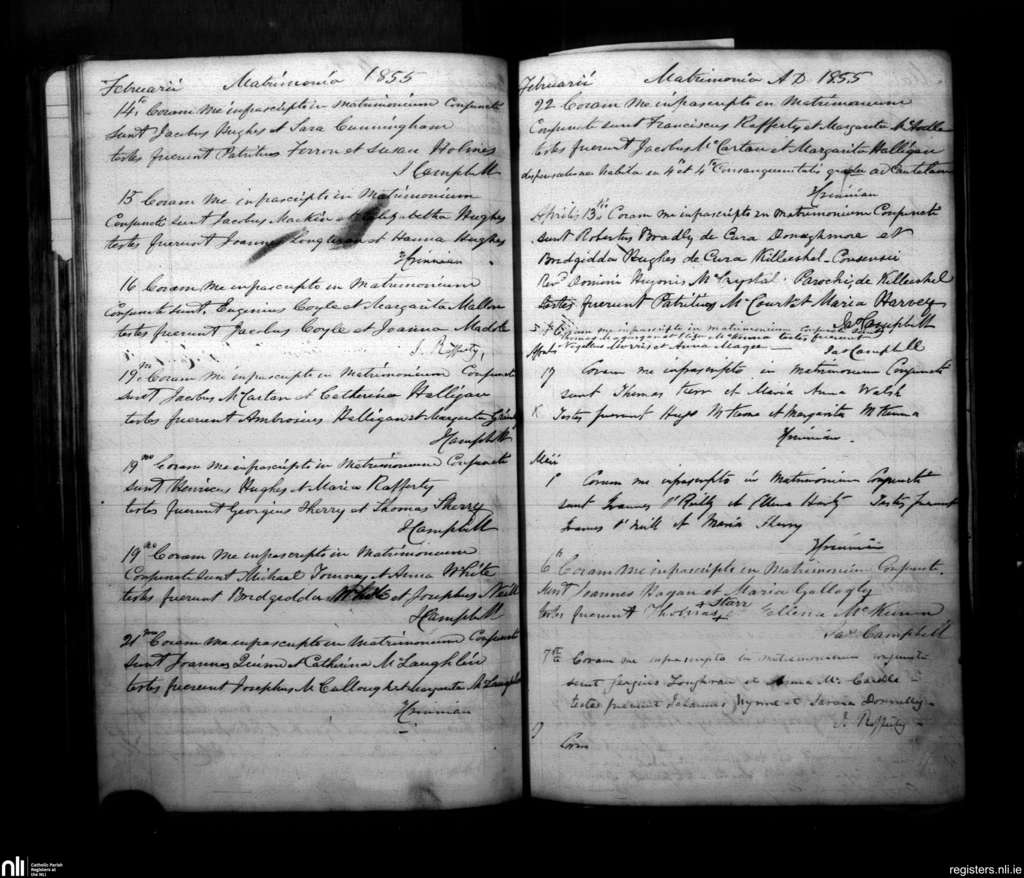 Februarii Matrimonia 1855
14 Coram me infrascripto in matrimonium Conjuncti
sunt Jacobus Hughes et Sara Cunningham
testes fuerunt Patritius et Susan Holmes
J Campbell
15 Coram me infrascripto in Matrimonium
Conjuncti sunt Jacobus Mackin et Elizabetha Hughes
testes fuerunt Joannes et Hanna Hughes
16 Coram me infrascripto in Matrimonium
Conjuncti sunt Eugenius Coyle et Margarita Mallon
testes fuerunt Jacobus Coyle et Joanna
J. Rafferty
19 Coram me infrascripto in Matrimonium Conjuncti
sunt Jacobus McCartan et Catherina Halligan
testes fuerunt Ambrosius Halligan et Margarita
J Campbell
19mo Coram me infrascripto in Matrimonium Conjuncti
sunt Henricus Hughes et Maria Rafferty
testes fuerunt Georgius Sherry et Thomas Sherry
J Campbell
19no Coram me infrascripto in Matrimonium
Conjuncti sunt Michael et Anna White
testes fuerunt Bridgedda White et Josephus Neill
J Campbell
21mo Coram me infrascripto in Matrimonium Conjuncti
sunt Joannes Quinn et Catherina McLaughlin
testes fuerunt Josephus McCallough et McLaughlin
Februarii Matrimonia A D. 1855
22 Coram me infrascripto in Matrimonium
Conjuncti sunt Franciscus Rafferty et Margarita
testes fuerunt Jacobus McCartan et Margarita Halligan
dispensatione habita in 4to et 4to Consanguinitatis gradu
Aprilis 13 Coram me infrascripto in Matrimonium Conjuncti
sunt Robertus Bradly de Cura Donaghmore et
Bridgidda Hughes de Cura Killeeshel. Consensu
Revd Domini Hugonis McCrystal. Parochi de Killeeshel
testes fuerunt Patritius McCourt et Maria Harvey
Jas Campbell
Coram me infrascripto in matrimonium conjuncti sunt
McKenna testes fuerunt
Aprilis Morris et Anna Magee
Jas Campbell
19 Coram me infrascripto in Matrimonium Conjuncti
sunt Thomas et Maria Anna Walsh
Testes fuerunt Hugo et Margarita McKenna
Maii
1 Coram me infrascripto in Matrimonium Conjuncti
sunt Joannes O'Reilly et Ellena Testes fuerunt
Joannes O'Neill et Maria
6 Coram me infrascripto in Matrimonium Conjuncti
sunt Joannes Hagan et Maria Gallogly
testes fuerunt Thomas Starr et McKenna
Jas Campbell
7 Coram me infrascripto in matrimonium conjuncti
sunt Loughran et Anna McCardle
testes fuerunt et Donnelly
J. Rafferty
9 Coram
nli Catholic Parish
Registers at
the NLI
registers.nli.ie